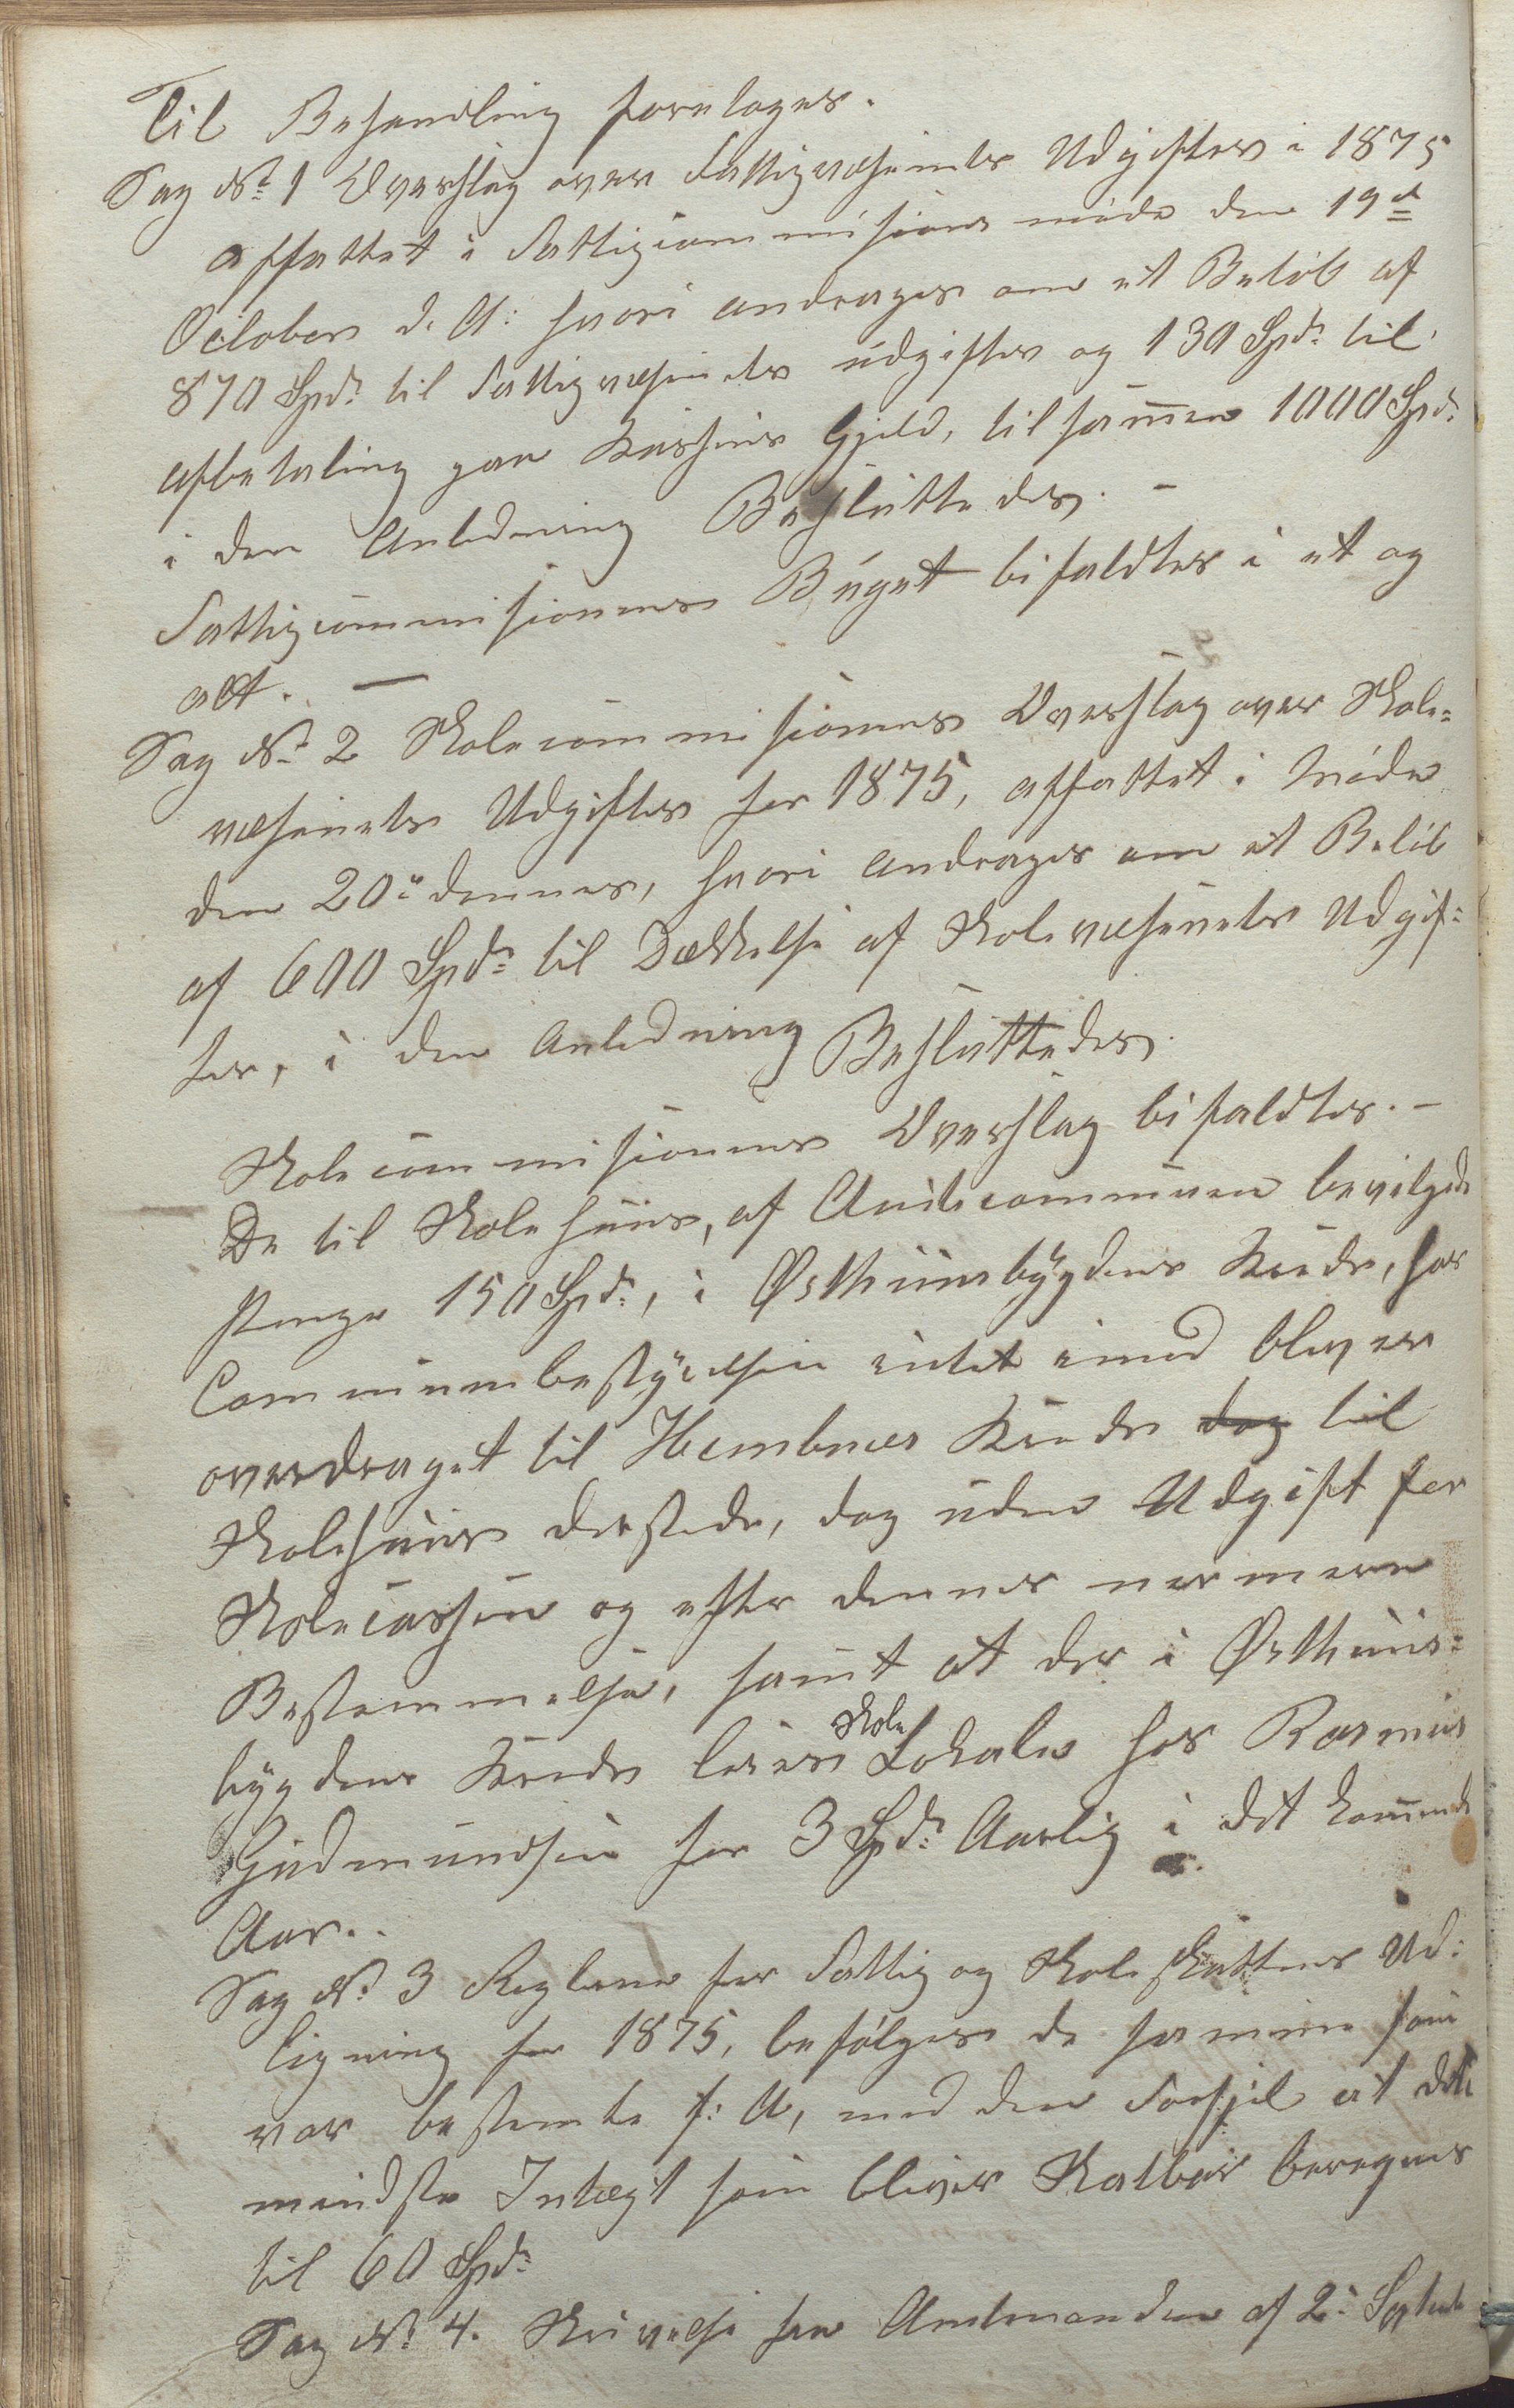 Til Behandling foretoges.
Sag No 1 Overslag over Fattigvæsenets Udgifter i 1875
affattet i Fattigcommisions møde den 19d
October d. A: hvori andrages om et Beløb af
870 Spd: til Fattigvæsenets udgifter og 130 Spd: til
afbetaling paa Kassens Gjeld, tilsammen 1000 Spd:
i den Anledning Besluttedes. –
Fattigcommisionens Buget bifaldtes i et og
alt. —
Sag No 2 Skolecommisionens Overslag over Skole=
væsenets Udgifter for 1875, affattet i Møde
den 20de dennes, hvori andrages om et Beløb
af 600 Spd: til Dækkelse af Skolevæsenets Udgif=
ter, i den Anledning Besluttedes.
Skolecommisionens Overslag bifaldtes. –
De til Skolehuus, af Amtscommunen bevilgede
Penge 150 Spd:, i Østhuusbygdens Kreds, har
Communebestyrelsen intet imod bliver
overdraget til Hembnes Kreds dog til
Skolehuus dersteds, dog uden Udgift for
Skolecassen og efter dennes nermere
Bestemmelse, samt at der i Østhuus=
bygdens Kreds leies Skole Lokale hos Rasmus
Gudmundsen for 3 Spd: Aarlig i det kommende
Aar..
Sag No 3 Reglerne for Fattig og Skoleskattens Ud=
ligning for 1875, befølges de samme som
var bestemte f: A, med den Forsjel at det
mindste Intægt som bliver Skatbar beregnes
til 60 Spd:
Sag No 4. Skrivelse fra Amtmanden af 2: Septb